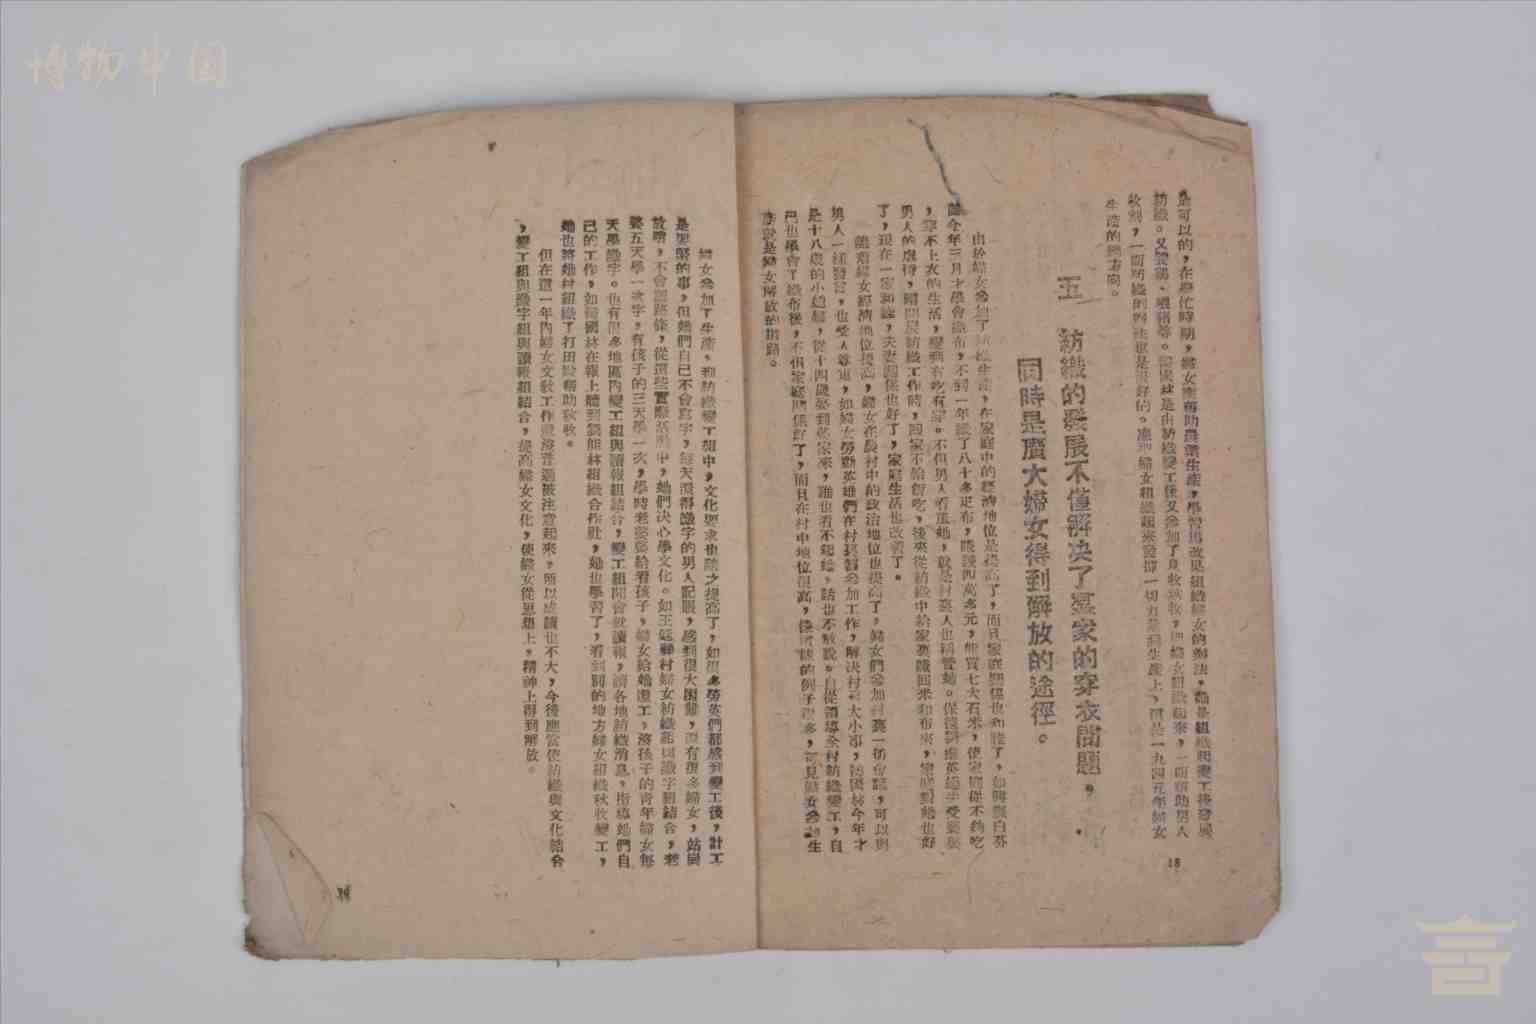 博物中国
是可以的，在農忙時期，婦女應幫助農業生產，學習出改見組織婦女的辦法，動員組織起變工後發展
紡織。又變鷄、喂猪等。
收割，一面紡織的辦法也是很好的。應把婦女組織起來發揮一切力量到生產上，這是一九四五年婦女
生產的總方向。
五 紡織的發展不僅解决了羣家的穿衣問題，
同時是廣大婦女得到解放的途徑。
由於婦女參加了紡織生產，在家庭中的經濟地位是提高了，而且家庭關係也和睦了，如興縣白芬
今年三月才學會織布，不到一年織了八十多疋布，賺錢四萬多元，能買七大石米，使家庭從不夠吃
，穿不上衣的生活，變到有吃有穿。不但男人看重她，就是村裏人也稱贊她。保德劉
男人的虐待，開展紡織工作時，回家不給飯吃，後來從紡織中給家裏賺回米和布來，家庭對她也好
了，現在一家和睦，夫妻關係也好了，家庭生活也改善了。
隨着婦女經濟地位提高，婦女在農村中的政治地位也提高了，婦女們參加村裏一切會議，可以與
男人一樣發言，也受人尊重，如婦女勞動英雄們在村裏都參加工作，解决村裏大小事，張國林今年才
是十八歲的小媳婦，從十四歲娶到張家來，誰也看不起她，話也不敢說。自從領導全村紡織變工，自
己也學會了織布後，不但家庭關係好了，而且在村中地位很高，像這樣的例子很多，可見婦女參加生
產就是婦女解放的道路。
18
婦女參加了生產，到紡織變工組中，文化要求也隨之提高了，如很多勞英們都感到變工後，計工
是要緊的事，但她們自己不會寫字，每天還得識字的男人記賬，感到很大困難，還有很多婦女，站崗
放哨，不會認路條，從這些實際活動中，她們决心學文化。如王廷驊村婦女紡織組與識字組結合，老
婆五天學一次字，有孩子的三天學一次，學時老婆婆給看孩子，婦女給她還工，沒孩子的青年婦女每
天學識字。也有很多地區內變工組與讀報組結合，變工組開會就讀報，讀各地紡織消息，指導她們自
己的工作，如張國林在報上聽到劉能林組織合作社，她也學習了，看到別的地方婦女組織秋收變工，
她也將她村組織了打田隊幫助秋收。
但在這一年內婦女文教工作還沒普遍被注意起來，所以成績也不大，今後應當使紡織與文化結合
，變工組與識字組與讀報組結合，提高婦女文化，使婦女從思想上，精神上得到解放。